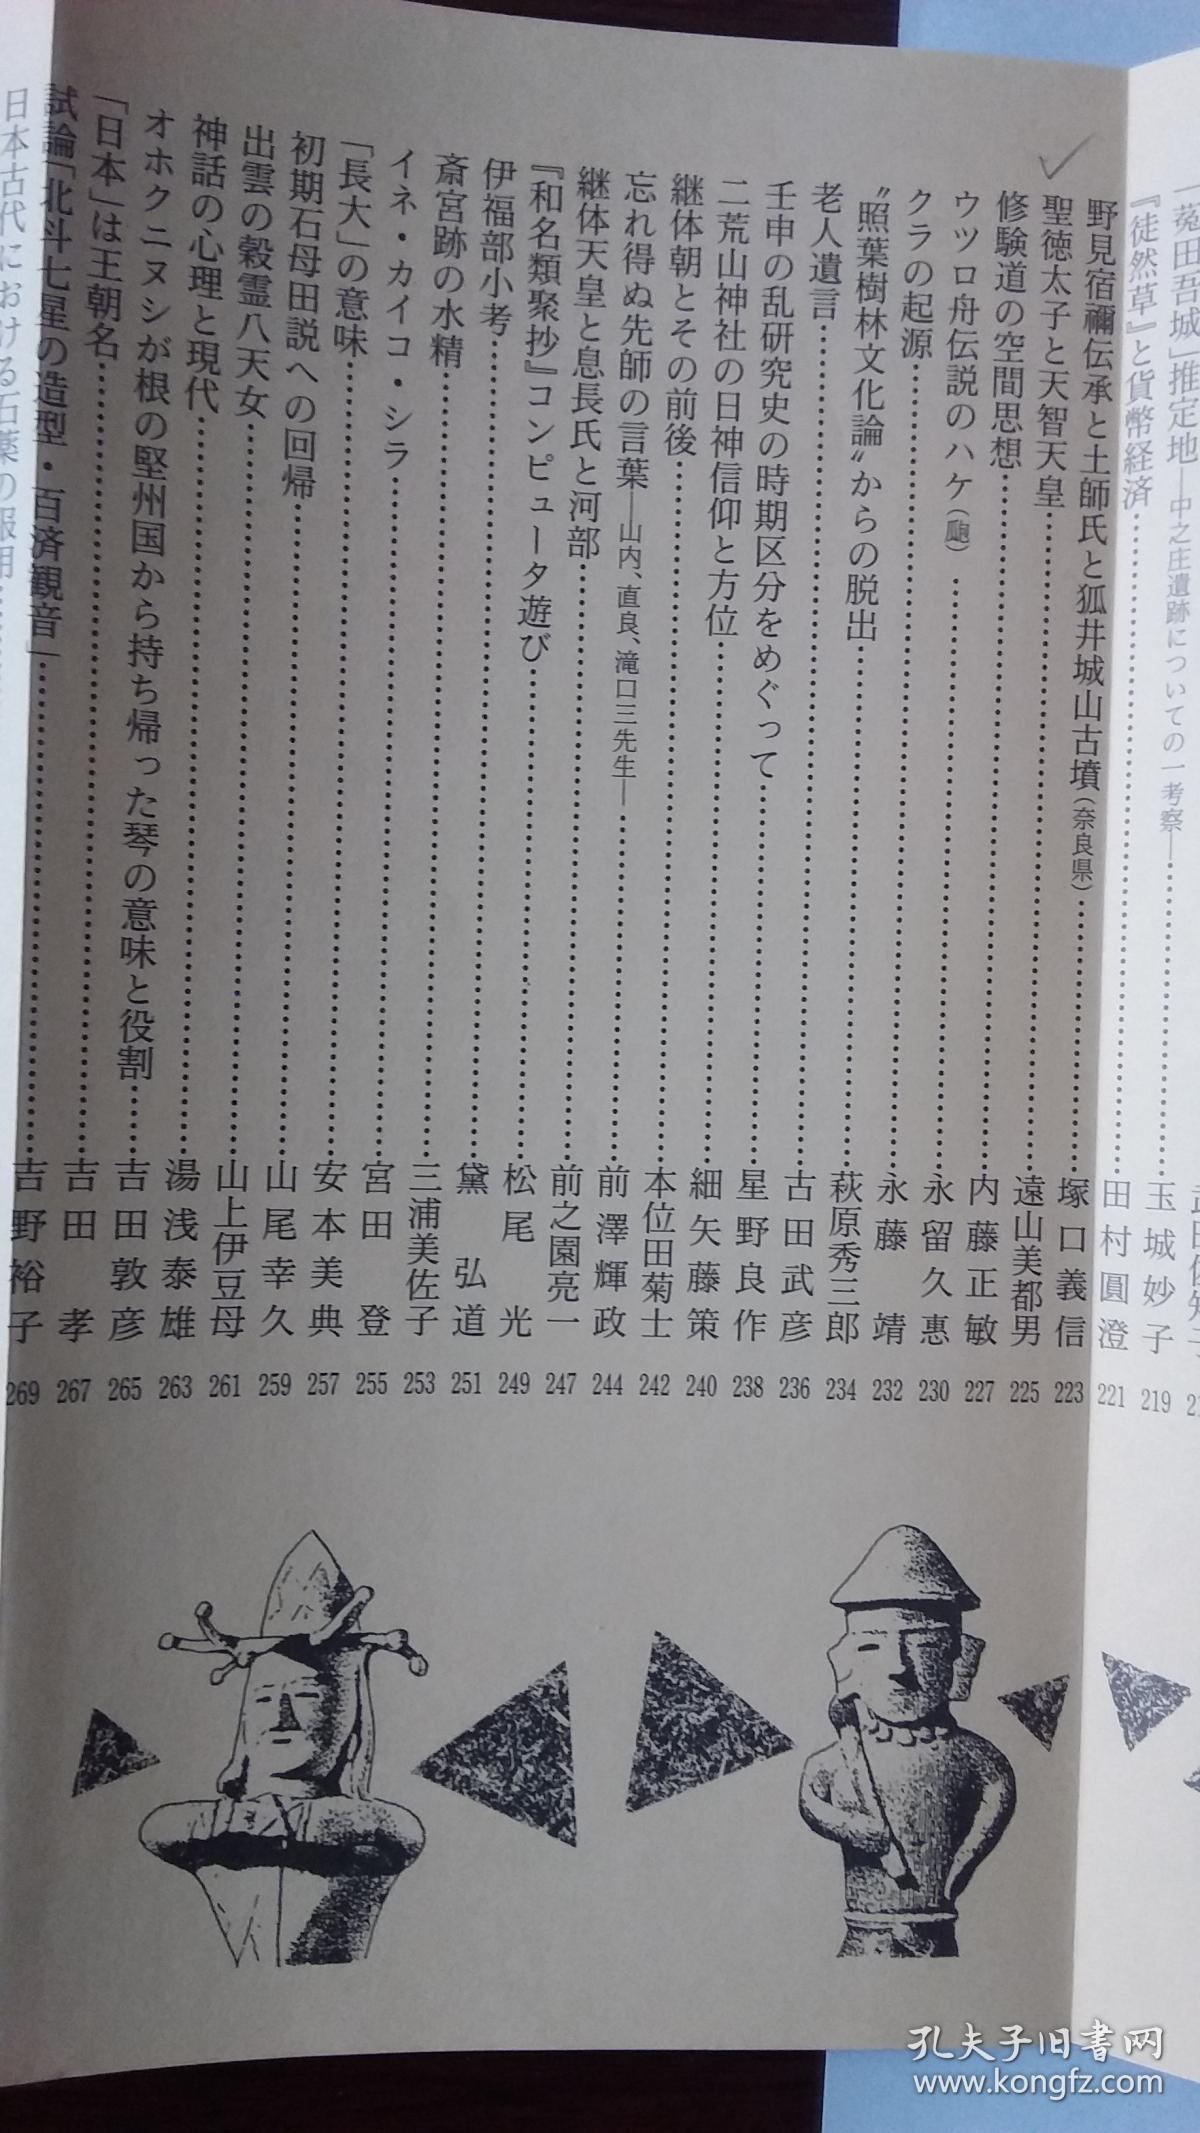 「菟田吾城」推定地―中之庄遺跡についての一考察―……玉城妙子 219
『徒然草』と貨幣経済……田村圓澄 221
野見宿禰伝承と土師氏と狐井城山古墳（奈良県）……塚口義信 223
聖徳太子と天智天皇……遠山美都男 225
修験道の空間思想……内藤正敏 227
ウツロ舟伝説のハケ（瓟）……永留久惠 230
クラの起源……永藤靖 232
“照葉樹林文化論”からの脱出……萩原秀三郎 234
老人遺言……古田武彦 236
壬申の乱研究史の時期区分をめぐって……星野良作 238
二荒山神社の日神信仰と方位……細矢藤策 240
継体朝とその前後……本位田菊士 242
忘れ得ぬ先師の言葉―山内、直良、滝口三先生―……前澤輝政 244
継体天皇と息長氏と河部……前之園亮一 247
『和名類聚抄』コンピュータ遊び……松尾光 249
伊福部小考……黛弘道 251
斎宮跡の水精……三浦美佐子 253
イネ・カイコ・シラ……宮田登 255
「長大」の意味……安本美典 257
初期石母田説への回帰……山尾幸久 259
出雲の穀霊八天女……山上伊豆母 261
神話の心理と現代……湯浅泰雄 263
オホクニヌシが根の堅州国から持ち帰った琴の意味と役割……吉田敦彦 265
「日本」は王朝名……吉田孝 267
試論「北斗七星の造型・百済観音」……吉野裕子 269
日本古代における石薬の服用……
孔夫子旧书网
www.kongfz.com